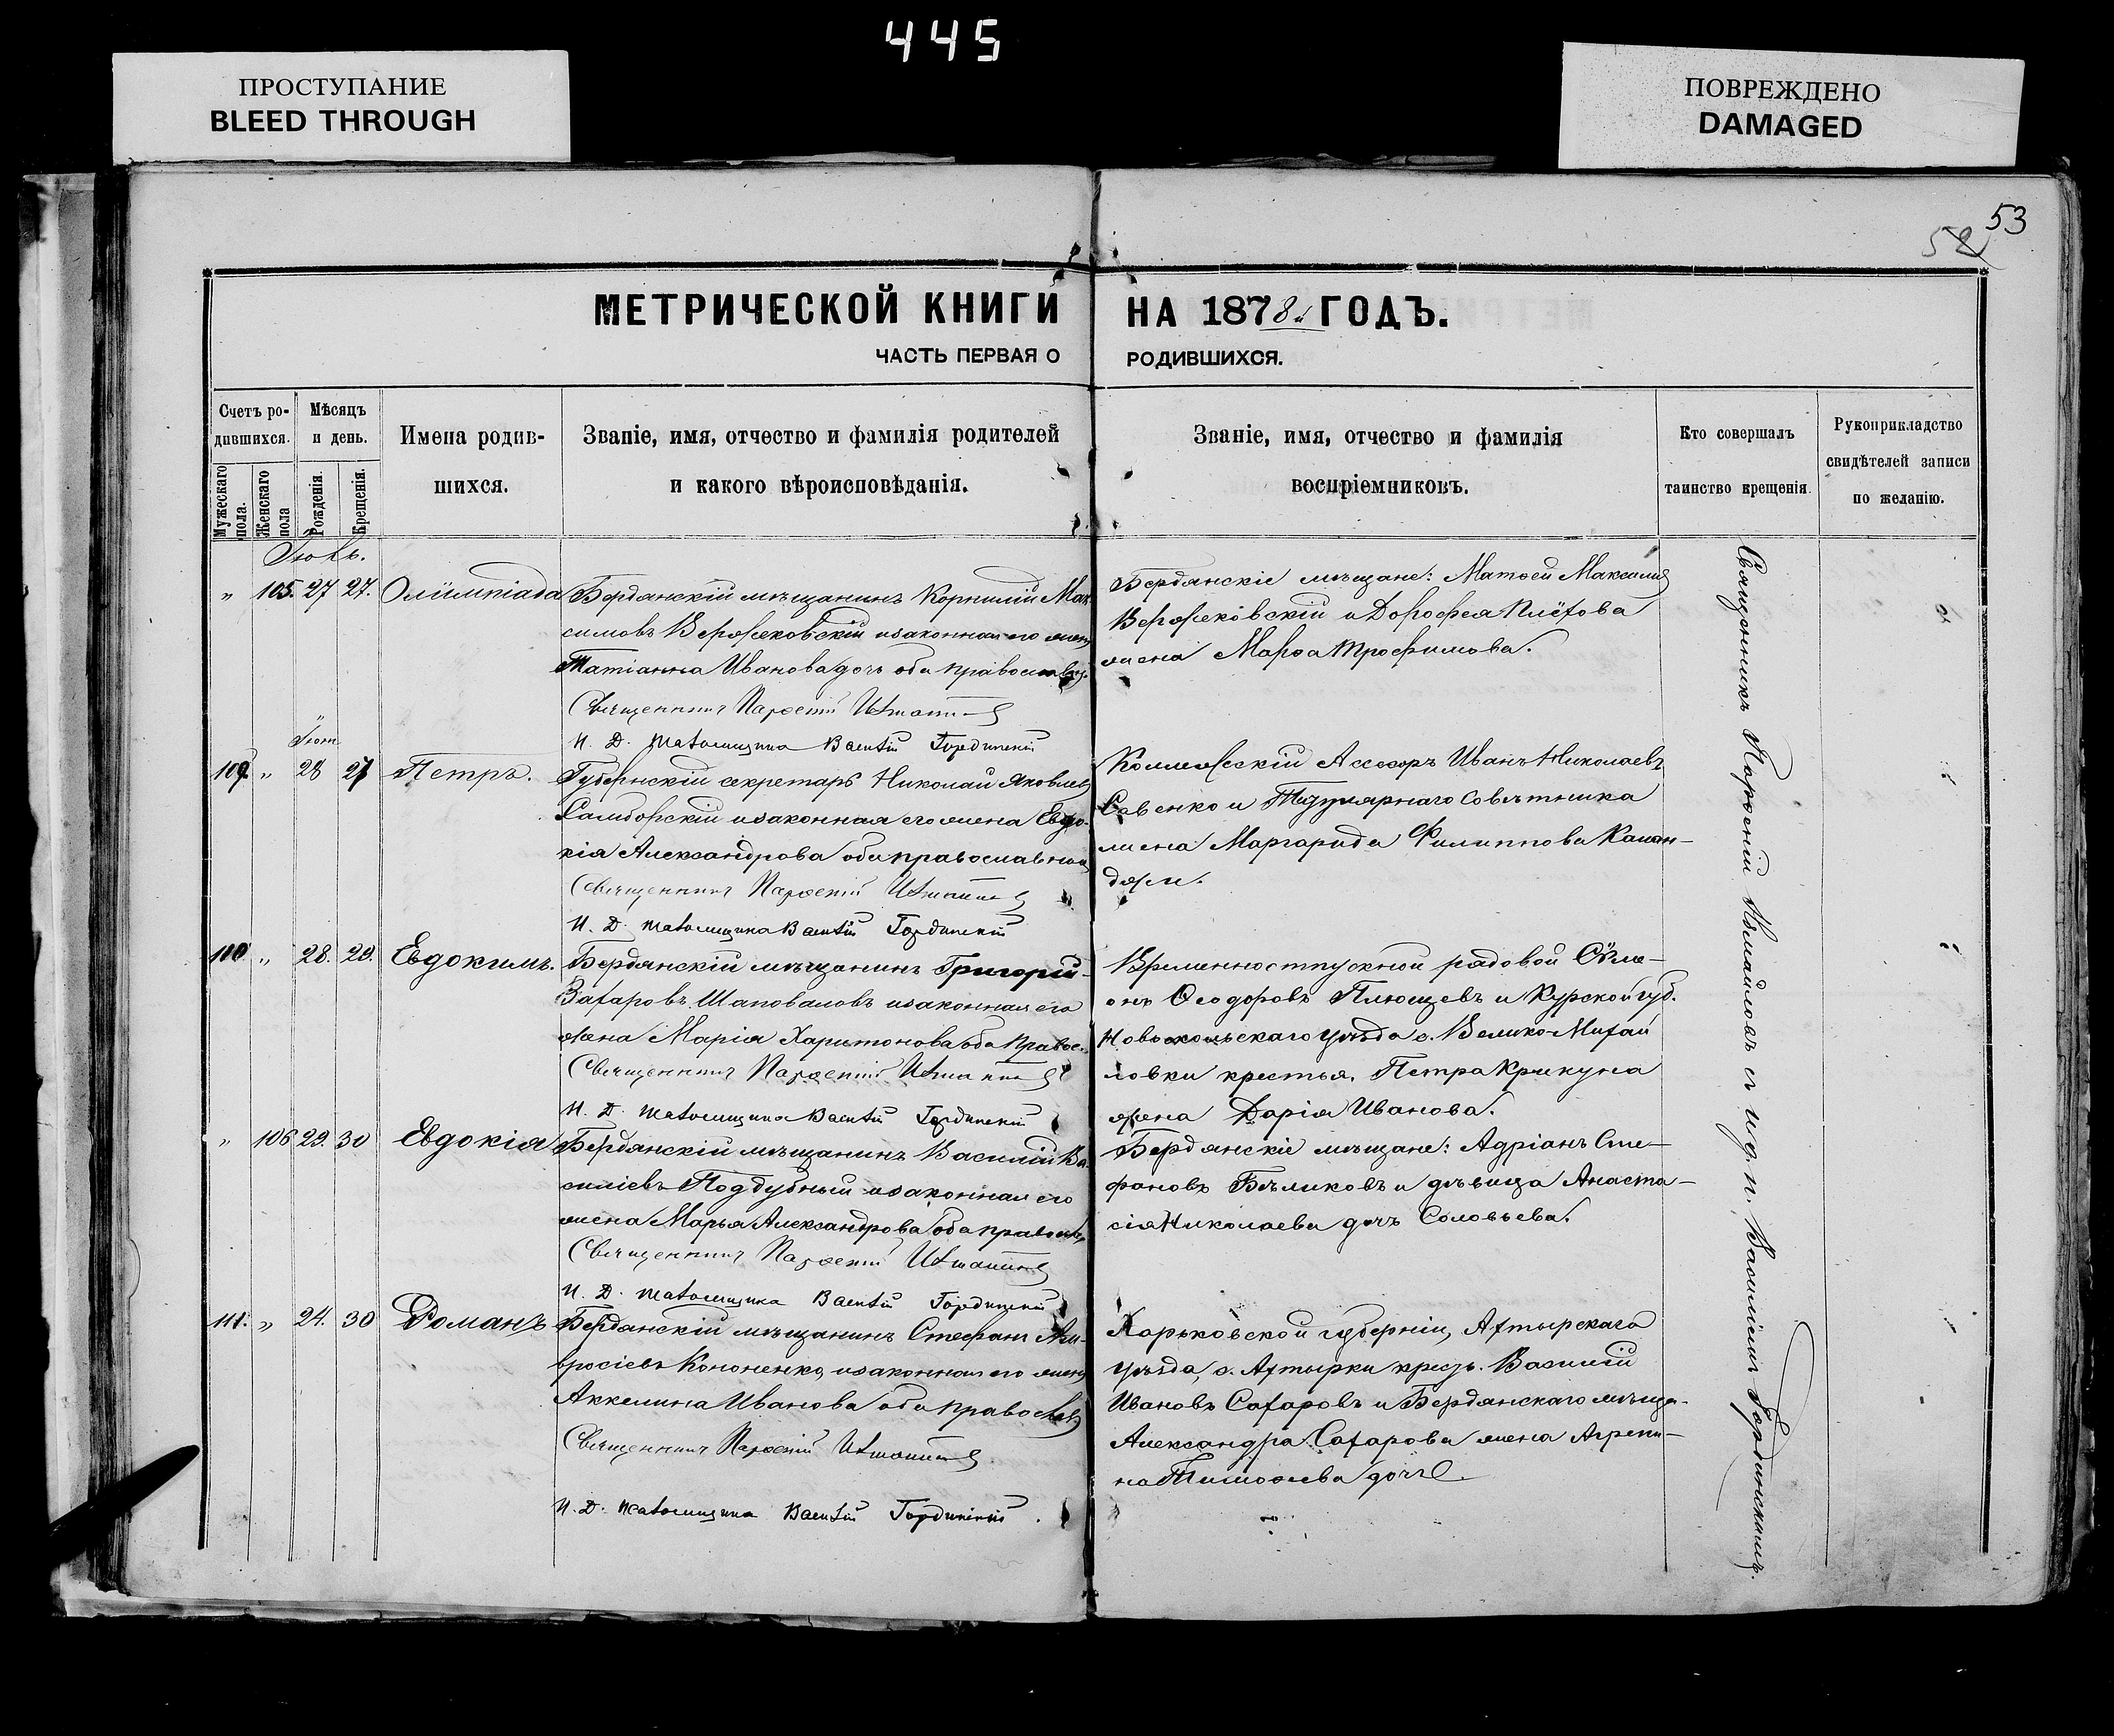 445
ПРОСТУПАНИЕ
BLEED THROUGH
ПОВРЕЖДЕНО
DAMAGED
53
52
МЕТРИЧЕСКОЙ КНИГИ НА 1878й ГОДЪ.
ЧАСТЬ ПЕРВАЯ О РОДИВШИХСЯ.
Счетъ ро-
дившихся.
Мужескаго пола.
Женскаго пола
Мѣсяцъ
и день.
Рожденія.
Крещенія.
Имена родив-
шихся.
Званіе, имя, отчество и фамилія родителей
и какого вѣроисповѣданія.
Званіе, имя, отчество и фамилія
воспріемниковъ.
Кто совершалъ
таинство крещенія.
Рукоприкладство
свидѣтелей записи
по желанію.
" 105. 27 27. Олимпіада
Бердянскій мѣщанинъ Корнилій Мак-
симовъ и законная его жена
Татіанна Иванова дочь оба православн.
Священникъ
И. Д. Псаломщика Василій Гординскій
Бердянскіе мѣщане: Матѳей Максимов
и Дорофея
жена Марѳа Трофимова.
109 " 28 27 Петръ.
Губернскій секретарь Николай Яковлев
Самборскій и законная его жена Евдо-
кія Александрова оба православные
Священникъ
И. Д. Псаломщика Василій Гординскій
Коллежскій Ассесоръ Иванъ Николаевъ
Савенко и Титулярнаго Совѣтника
жена Маргарида Филиппова
110 " 28. 29. Евдокимъ.
Бердянскій мѣщанинъ Григорій
Захаровъ Шаповаловъ и законная его
жена Марія Харитонова оба правос.
Священникъ
И. Д. Псаломщика Василій Гординскій
Временноотпускной рядовой Сѵме-
онъ Ѳеодоровъ Плющевъ и Курской губ.
Новооскольскаго уѣзда с. Велико-Михай
ловки крестья. Петра Крикуна
жена Дарія Иванова.
" 106 29. 30 Евдокія
Бердянскій мѣщанинъ Василій Ва-
силіевъ Поддубный и законная его
жена Марья Александрова оба правосл.
Священникъ
И. Д. Псаломщика Василій Гординскій
Бердянскіе мѣщане: Адріанъ Сте-
фановъ Бѣликовъ и дѣвица Анаста-
сія Николаева дочь Соловьева.
111. " 24. 30 Романъ
Бердянскій мѣщанинъ Стефанъ Ам-
вросіевъ Кононенко, и законная его жена
Аккелина Иванова оба православ
Священникъ
И. Д. Псаломщика Василій Гординскій.
Харьковской губерніи, Ахтырскаго
уѣзда, с. Ахтырки крест. Василій
Ивановъ Сахаровъ и Бердянскаго мѣща-
Александра Сахарова жена Агрепи-
на Тимоѳеева дочь.
Священникъ съ и. д. п. Василіемъ Гординскимъ.